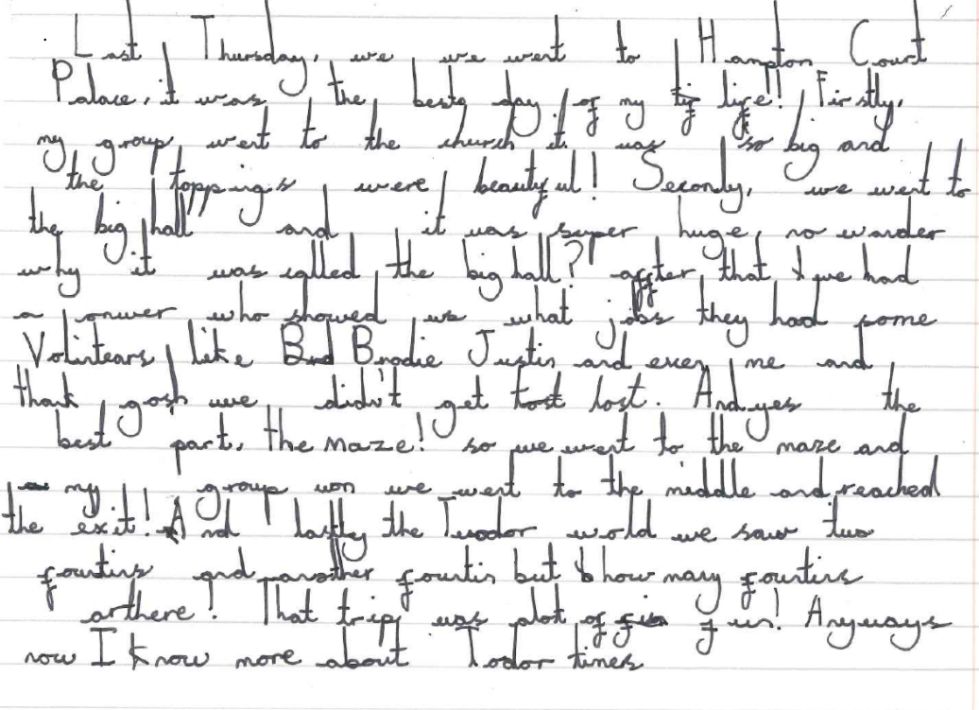 Last Thursday, we we went to Hampton Court
Palace, it was the bestg day of my lif life! Firstly,
my group went to the church it was so big and
the toppings were beautyful! Seconly, we went to
the big hall and it was super huge, no wander
why it was called the big hall? affter that we had
a who showed us what jobs they had some
Volintears like Brodie Justin and even me and
thank gosh we didn't get tost lost. And yes the
best part, the maze! so we went to the maze and
my group won we went to the middle and reached
the exit! And lastly the Tuodor world we saw two
fountins and another fountin but how many fountins
arthere! That trip was alot of fun! Anyways
now I know more about Todor times